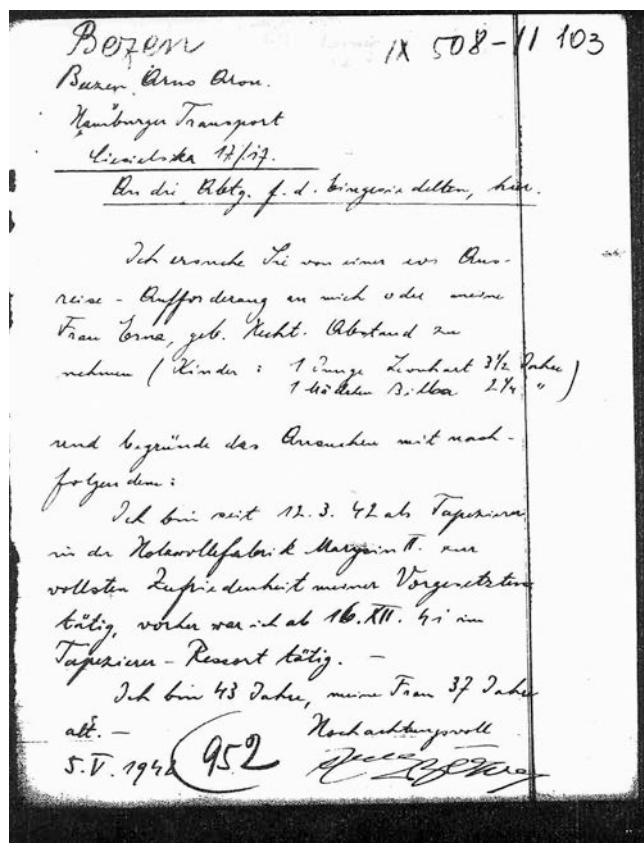 Bezen
IX 508-II 103
Bezen, Arno Aron.
Hamburger Transport
17/17.
An die Abtg. f. d. Eingesiedelten, hier.
Ich ersuche Sie von einer Aus-
reise - Aufforderung an mich oder meine
Frau Erna, geb. Hecht. Abstand zu
nehmen (Kinder : 1 Junge Leonhart 3½ Jahre
1 Mädchen 2¼ " )
und begründe das Ansuchen mit nach-
folgendem:
Ich bin seit 12. 3. 42 als Tapezierer
in der Holzwollefabrik Marysin II. zur
vollsten Zufriedenheit meiner Vorgesetzten
tätig, vorher war ich ab 16. XII. 41 im
Tapezierer - Ressort tätig. —
Ich bin 43 Jahre, meine Frau 37 Jahre
alt. — Hochachtungsvoll
5. V. 1942 952